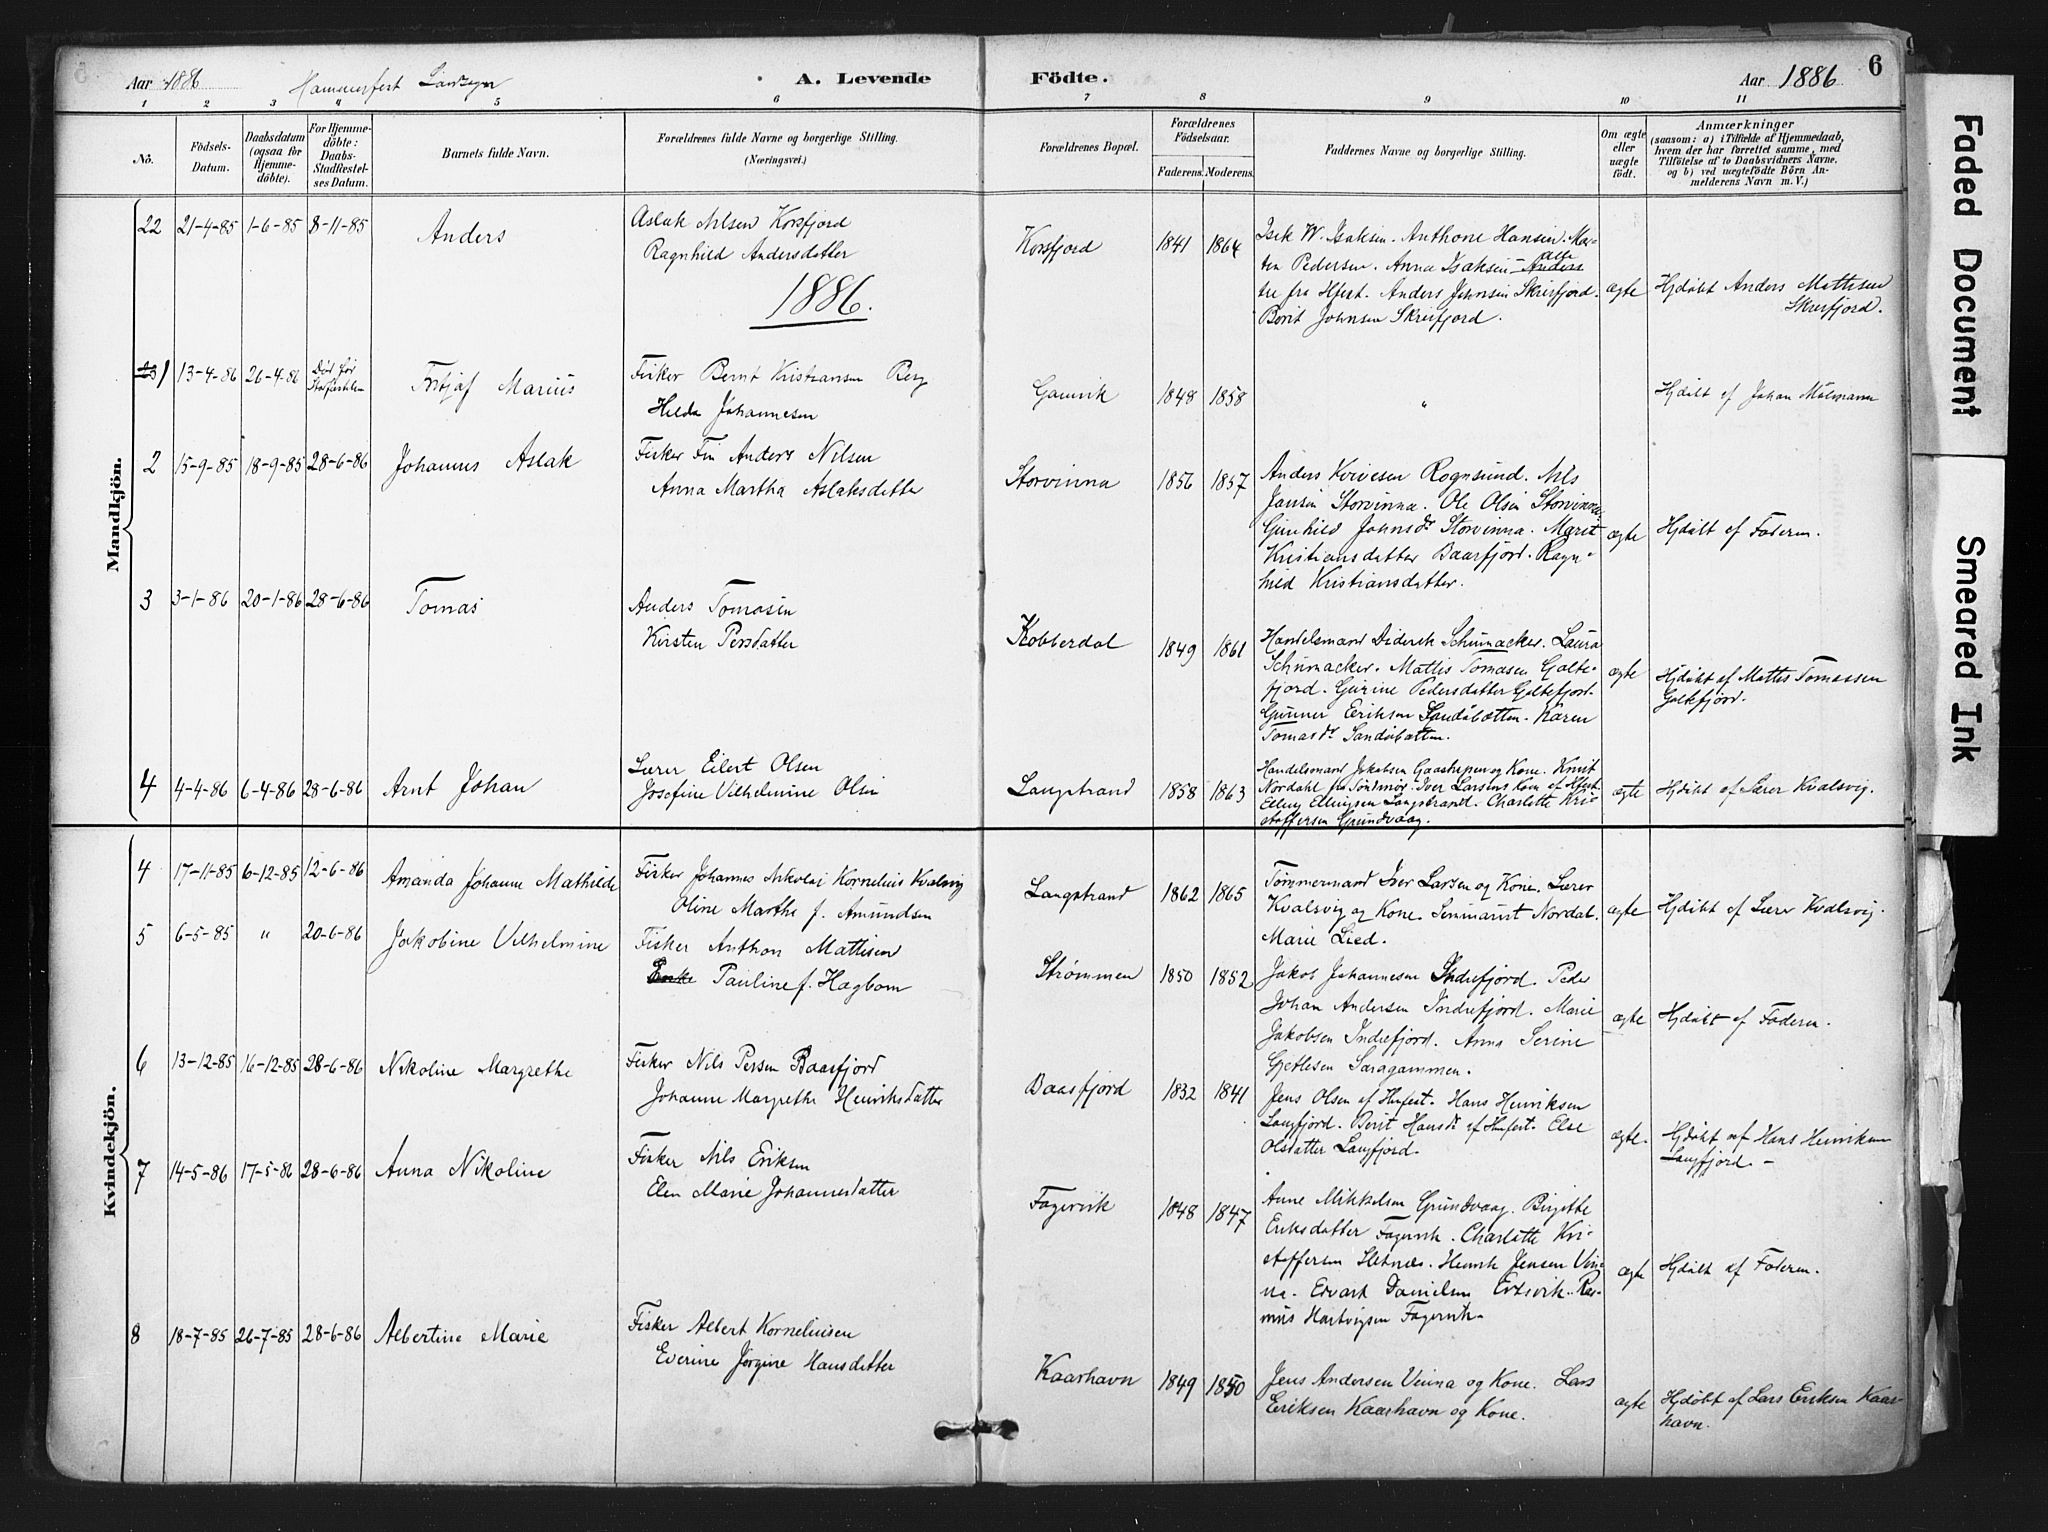 Aar 1886 Hammerfest Landsogn A. Levende Födte. Aar 1886 6
1 2 3 4 5 6 7 8 9 10 11
No. Födsels-Datum. Daabsdatum (ogsaa for Hjemme-döbte). For Hjemme-döbte: Daabs-Stadfæstel-ses Datum. Barnets fulde Navn. Forældrenes fulde Navne og borgerlige Stilling. (Næringsvei.) Forældrenes Bopæl. Forældrenes Födselsaar. Faderens. Moderens. Faddernes Navne og borgerlige Stilling. Om ægte eller uægte födt. Anmærkninger (saasom: a) i Tilfælde af Hjemmedaab, hvem der har forrettet samme, med Tilföielse af to Daabsvidners Navne, og b) ved uægtefödte Börn Anmelderens Navn m. V.)
Mandkjön.
22 21-4-85 1-6-85 8-11-85 Anders
Aslak Nilsen Korsfjord
Ragnhild Andersdatter
Korsfjord 1841 1864
Isak W. Isaksen. Anthone Hansen. Mar-
ten Pedersen. Anna Isaksen
fra Hfest. Anders Johnsen Skresfjord.
Berit Johnsen Skresfjord.
ægte
Hjdøbt Anders Mathisen
Skresfjord.
1886.
1 13-4-86 26-4-86 Død før Stadfæstelsen Fritjof Marius
Fisker Bernt Kristiansen Berg
Hilda Johannesen
Gamvik 1848 1858 "
Hjdøbt af Johan
2 15-9-85 18-9-85 28-6-86 Johannes Aslak
Fisker Fin Anders Nilsen
Anna Martha Aslaksdatter
Storvinna 1856 1857
Anders Kvivesen Rognsund. Nils
Jansen Storvinna. Ole Olsen Storvinna.
Gunhild Johnsdr Storvinna. Marit
Kristiansdatter Baarfjord. Ragn-
hild Kristiansdatter.
ægte
Hjdøbt af Faderen.
3 3-1-86 20-1-86 28-6-86 Tomas
Anders Tomasen
Kirsten Persdatter
Kobberdal 1849 1861
Handelsmand Diderek Schumacker. Laura
Schumacker. Mattis Tomasen Galte-
fjord. Gurine Pedersdatter Galtefjord.
Gunner Eriksen Sandøbotten. Karen
Tomasdr Sandøbotten.
ægte
Hjdøbt af Mattis Tomassen
Galtefjord.
4 4-4-86 6-4-86 28-6-86 Arnt Johan
Lærer Eilert Olsen
Josefine Vilhelmine Olsen
Langstrand 1858 1863
Handelsmand Jakobsen og Kone. Knut
Nordahl fra Søndmør. Iver Larsens Kone af Hfest.
Elling Ellingsen Langstrand. Charlotte Kri-
stoffersen Grundvaag.
ægte
Hjdøbt af Lærer Kvalsvig.
Kvindekjön.
4 17-11-85 6-12-85 12-6-86 Amanda Johanne Mathilde
Fisker Johannes Nikolai Kornelius Kvalsvig
Oline Marthe f. Amundsen
Langstrand 1862 1865
Tømmermand Iver Larsen og Kone. Lærer
Kvalsvig og Kone. Seminarist Nordal.
Marie Lied.
ægte
Hjdøbt af Lærer Kvalsvig.
5 6-5-85 " 20-6-86 Jakobine Vilhelmine
Fisker Anthon Mattisen
Pauline f. Hagbom
Strømmen 1850 1852
Jakob Johannesen Indrefjord. Peder
Johan Andersen Indrefjord. Marie
Jakobsen Indrefjord. Anna Serine
Saragammen.
ægte
Hjdøbt af Faderen.
6 13-12-85 16-12-85 28-6-86 Nikoline Margrethe
Fisker Nils Persen Baasfjord
Johanne Margrethe Henriksdatter
Baasfjord 1832 1841
Jens Olsen af Hmfest. Hans Henriksen
Langfjord. Berit Hansdr af Hmfest. Else
Olsdatter Langfjord.
ægte.
Hjdøbt af Hans Henriksen
Langfjord. -
7 14-5-86 17-5-86 28-6-86 Anna Nikoline
Fisker Nils Eriksen
Elen Marie Johannesdatter
Fagervik 1848 1847
Anne Mikkelsen Grundvaag. Birgitte
Eriksdatter Fagervik. Charlotte Kri-
stoffersen Sletnæs. Henrik Jensen Vin-
na. Edvart Danielsen Eidsvik. Ras-
mus Hartvigsen Fagervik.
ægte
Hjdøbt af Faderen.
8 18-7-85 26-7-85 28-6-86 Albertine Marie
Fisker Albert Korneliusen
Everine Jørgine Hansdatter
Kaarhavn 1849 1850
Jens Andersen Vinna og Kone. Lars
Eriksen Kaarhavn og Kone.
ægte
Hjdøbt af Lars Eriksen Kaar-
havn.
Faded Document
Smeared Ink